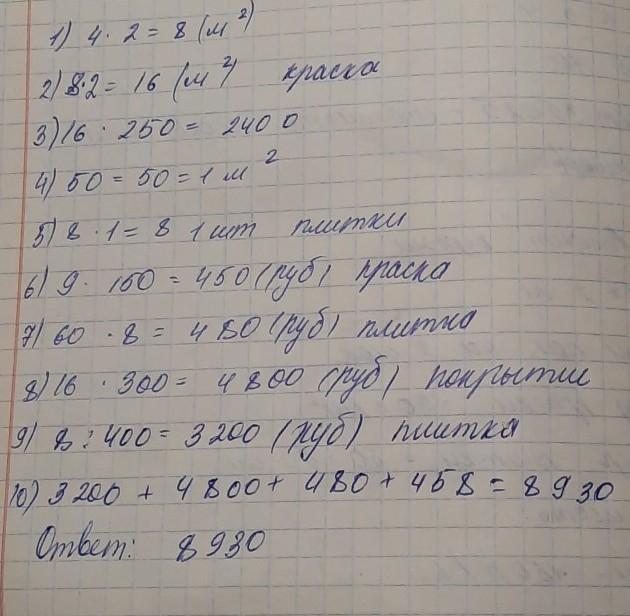 1) 4 · 2 = 8 (м²)
2) 8·2 = 16 (м²) краска
3) 16 · 250 = 2400
4) 50 = 50 = 1 м²
5) 8 · 1 = 8 1 шт плитки
6) 9 · 150 = 450 (руб) краска
7) 60 · 8 = 480 (руб) плитка
8) 16 · 300 = 4800 (руб) покрытие
9) 8 : 400 = 3200 (руб) плитка
10) 3200 + 4800 + 480 + 458 = 8930
Ответ: 8930